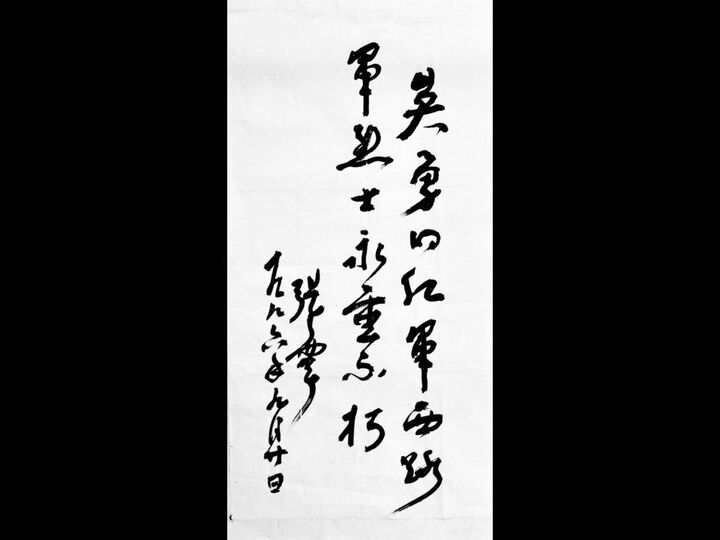 英勇的红軍西路
軍烈士永垂不朽
张震
一九九六年九月廿日